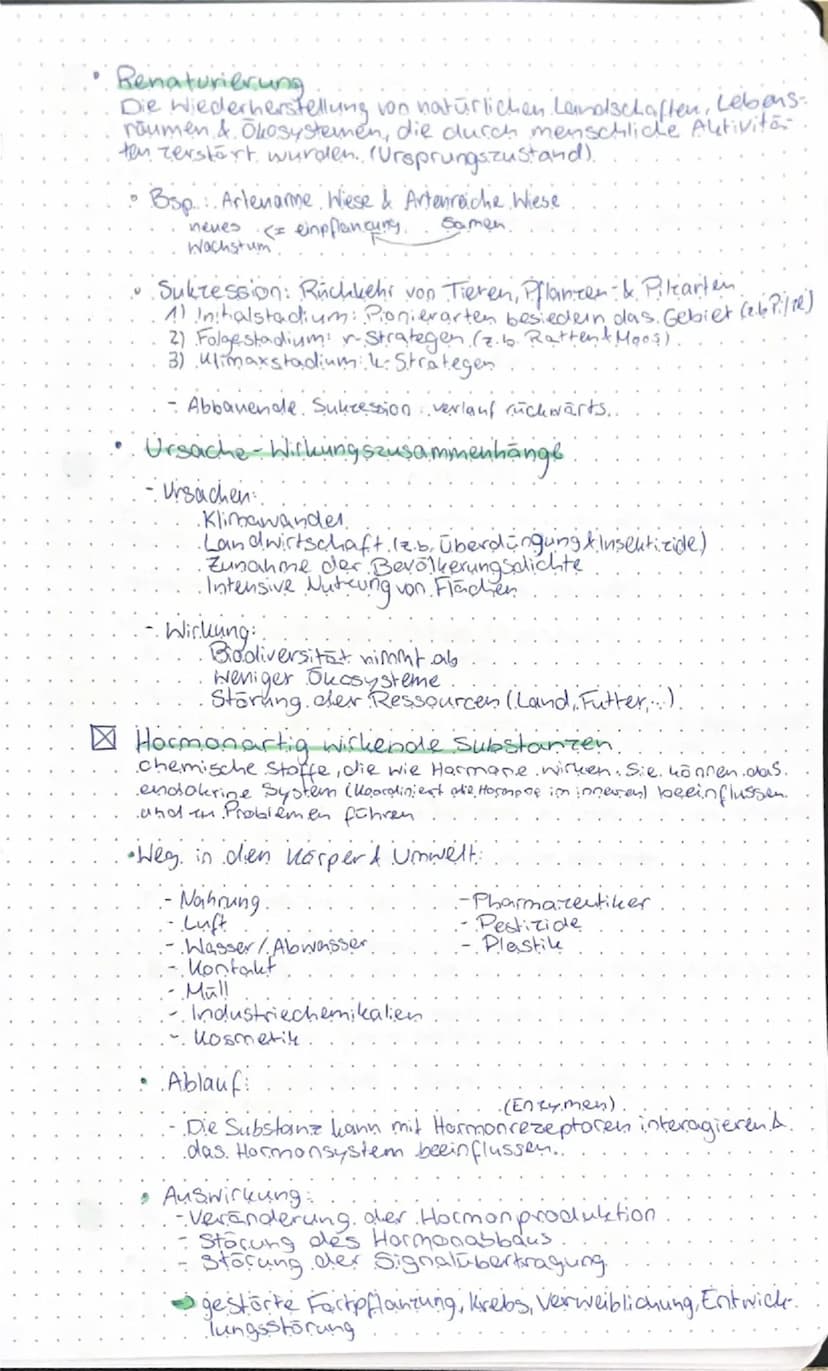 • Renaturierung
Die Wiederherstellung von natürlichen Landschaften, Lebens-
räumen & Ökosystemen, die durch menschliche Aktivitä-
ten zerstört wurden. (Ursprungszustand)
• Bsp.: Artenarme Wiese & Artenreiche Wiese
neues <= einpflanzung Samen
Wachstum
• Sukzession: Rückkehr von Tieren, Pflanzen- & Pilzarten
1) Initialstadium: Pionierarten besiedeln das Gebiet (z.b Pilze)
2) Folgestadium: r-Strategen (z.b. Ratten & Moos)
3) Klimaxstadium: k-Strategen
- Abbauende Sukzession: verlauf rückwärts.
• Ursache-Wirkungszusammenhänge
- Ursachen:
Klimawandel
Landwirtschaft (z.b. Überdüngung & Insektizide)
Zunahme der Bevölkerungsdichte
Intensive Nutzung von Flächen
- Wirkung:
Biodiversität nimmt ab
weniger Ökosysteme
Störung der Ressourcen (Land, Futter,...)
☒ Hormonartig wirkende Substanzen
chemische Stoffe, die wie Hormone wirken. Sie können das
endokrine System (Koordiniert die Hormone im inneren) beeinflussen
und zu Problemen führen
• Weg in den Körper & Umwelt:
- Nahrung - Pharmazeutiker
- Luft - Pestizide
- Wasser / Abwasser - Plastik
- Kontakt
- Müll
- Industriechemikalien
- Kosmetik
• Ablauf:
(Enzymen)
- Die Substanz kann mit Hormonrezeptoren interagieren &
das Hormonsystem beeinflussen.
• Auswirkung:
- Veränderung der Hormonproduktion
- Störung des Hormonabbaus
- Störung der Signalübertragung
→ gestörte Fortpflanzung, Krebs, Verweiblichung, Entwick-
lungsstörung